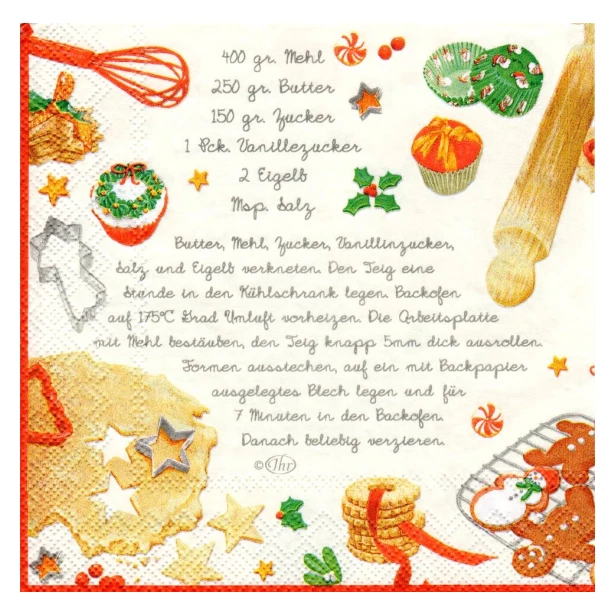 400 gr. Mehl
250 gr. Butter
150 gr. Zucker
1 Pck. Vanillezucker
2 Eigelb
Msp. Salz
Butter, Mehl, Zucker, Vanillinzucker,
Salz und Eigelb verkneten. Den Teig eine
Stunde in den Kühlschrank legen. Backofen
auf 175°C Grad Umluft vorheizen. Die Arbeitsplatte
mit Mehl bestäuben, den Teig knapp 5mm dick ausrollen.
Formen ausstechen, auf ein mit Backpapier
ausgelegtes Blech legen und für
7 Minuten in den Backofen.
Danach beliebig verzieren.
© Ihr